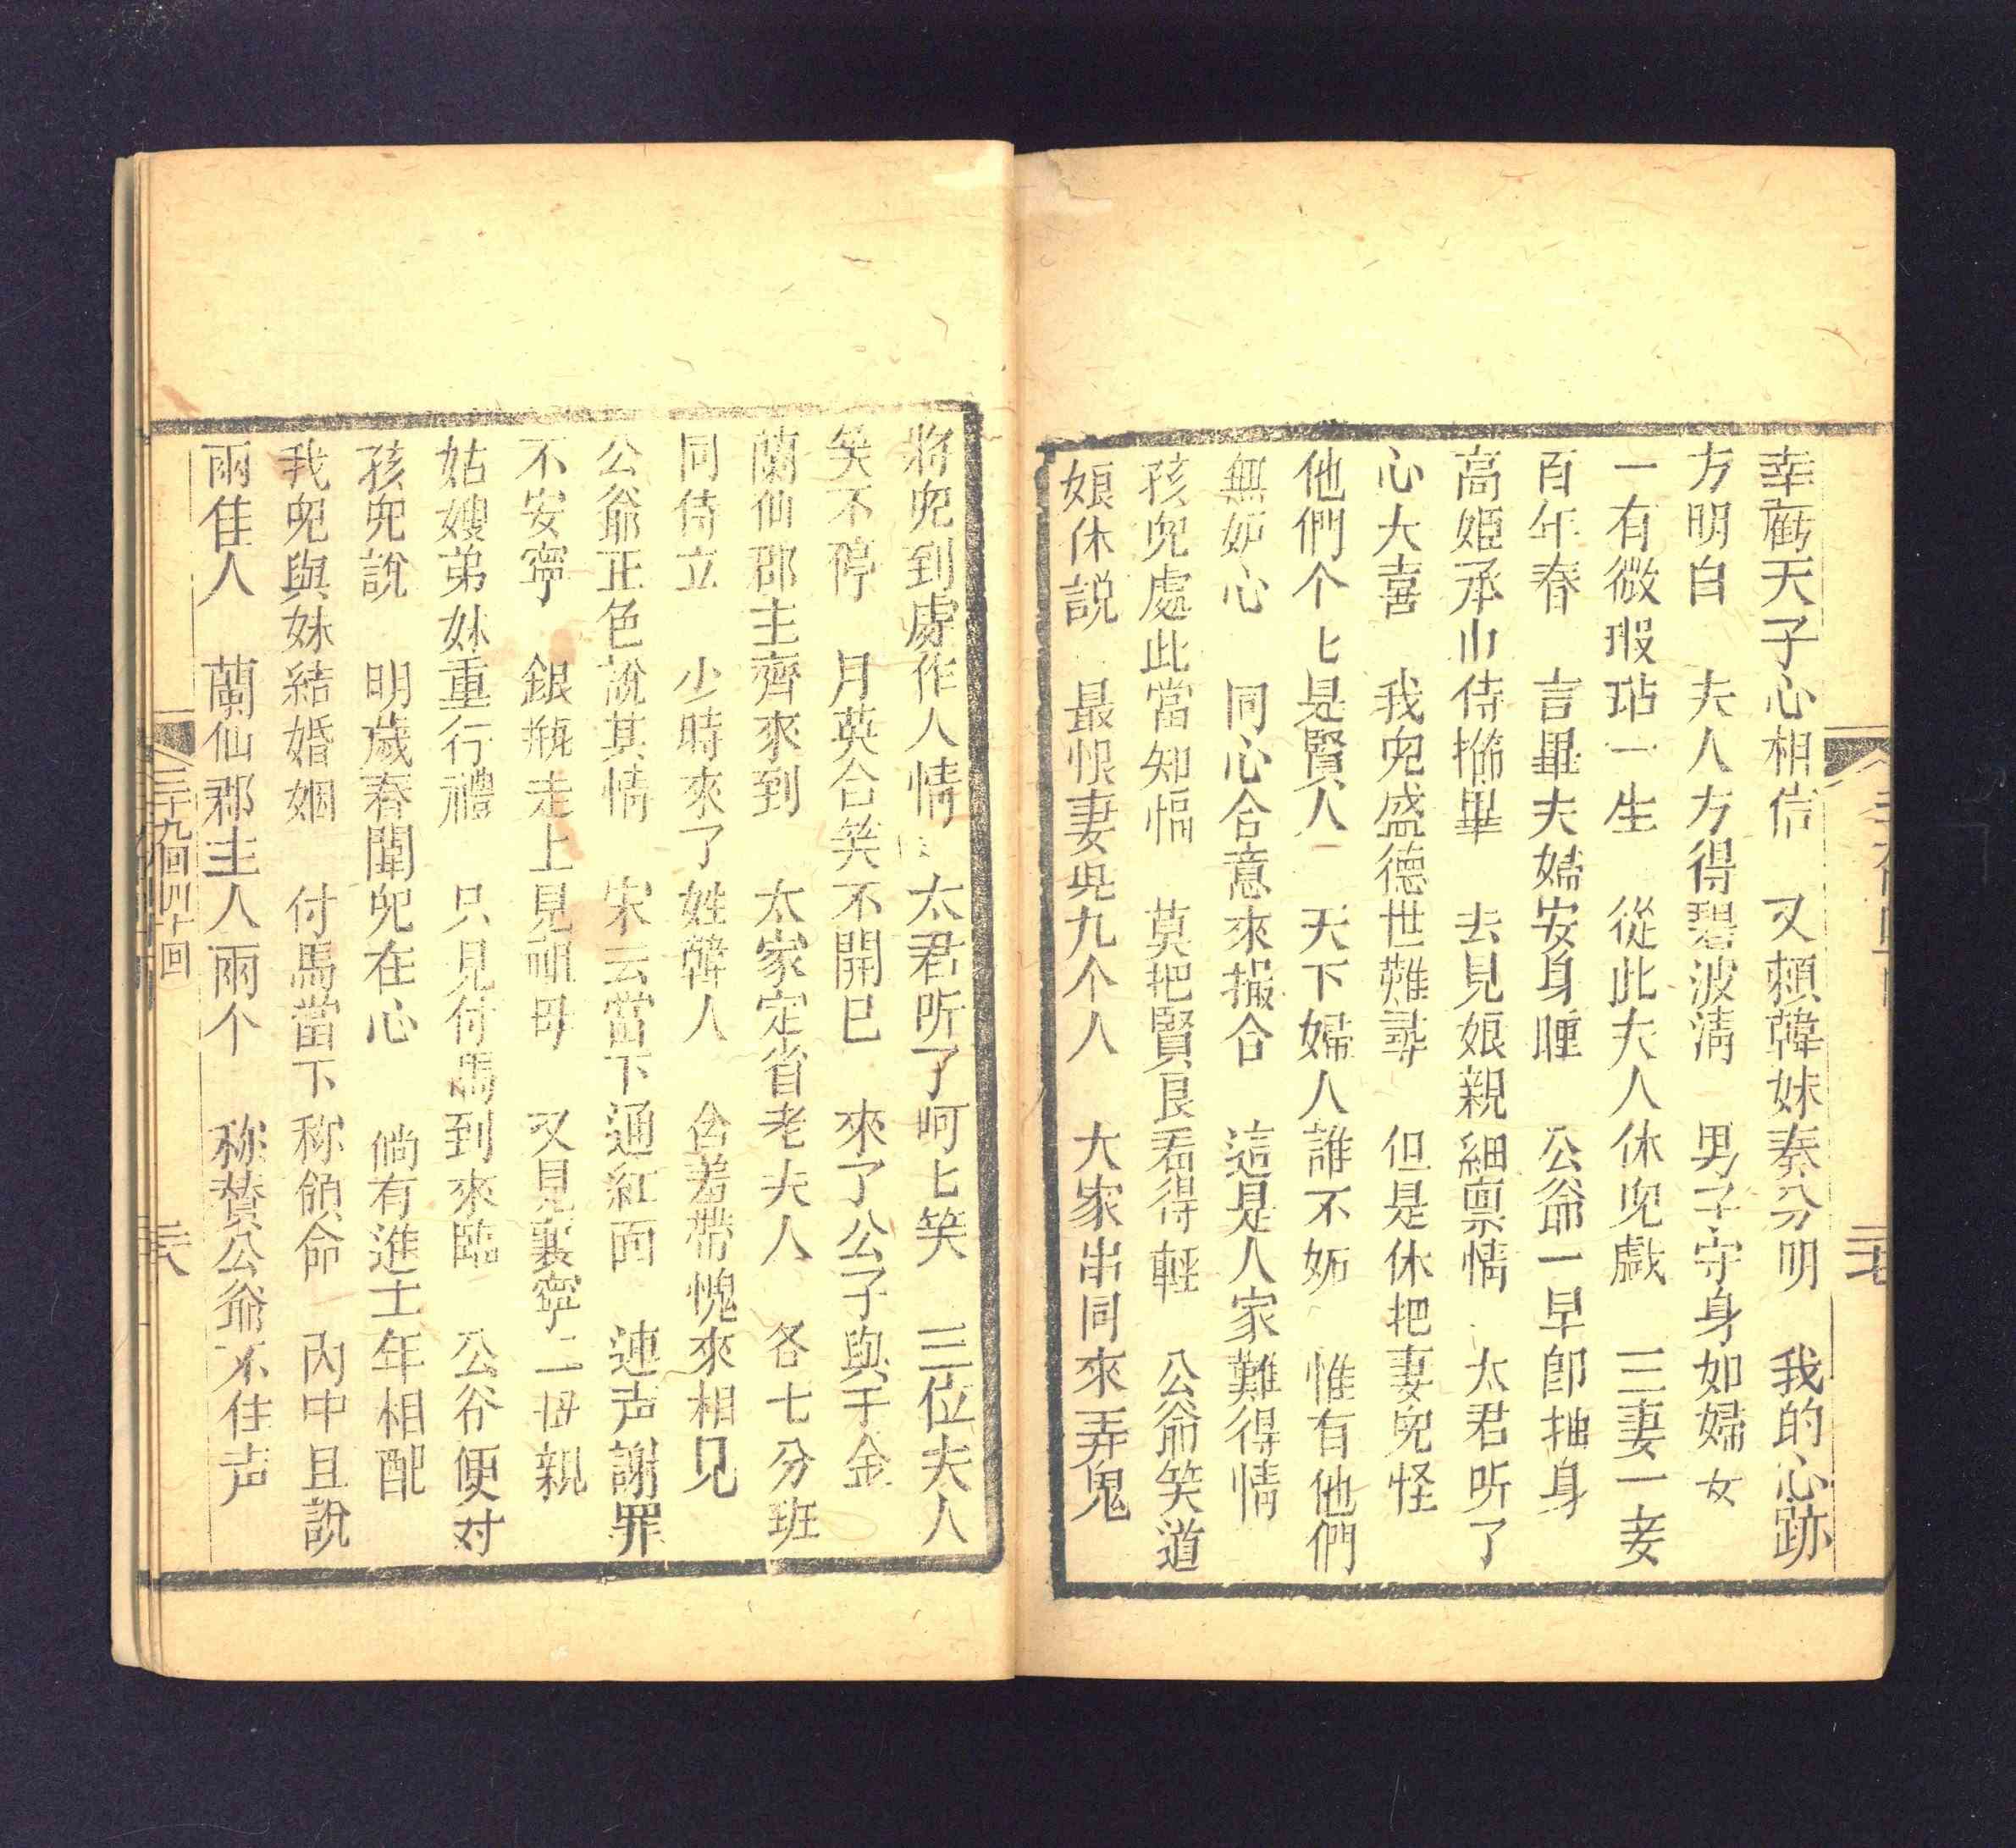 幸虧天子心相信　又頼韓妹奏分明　我的心跡
方明白　夫人方得碧波清　男子守身如婦女
一有微瑕玷一生　從此夫人休兒戲　三妻一妾
百年春　言畢夫婦安身睡　公爺一早即抽身
高姬承山侍櫛畢　去見娘親細禀情　太君听了
心大喜　我兒盛德世難尋　但是休把妻兒怪
他們个匕是賢人　天下婦人誰不妬　惟有他們
無妬心　同心合意來撮合　這是人家難得情
孩兒處此當知福　莫把賢良看得輕　公爺笑道
娘休説　最恨妻児九个人　大家串同來弄鬼
二七
將兒到處作人情　太君听了呵匕笑　三位夫人
笑不停　月英合笑不開口　來了公子與千金
蘭仙郡主齊來到　太家定省老夫人　各七分班
同侍立　少時來了姓韓人　含羞帶愧來相見
公爺正色說其情　宋云當下通紅面　連声謝罪
不安寧　銀瓶走上見祖母　又見襄寧二母親
姑嫂弟妹重行禮　只見付馬到來臨　公爷便对
孩兒說　明歲春闈兒在心　倘有進士年相配
我兒與妹結婚姻　付馬當下称領命　內中且說
兩佳人　蘭仙郡主人兩个　称賛公爺不住声
三十九回四十回
二六